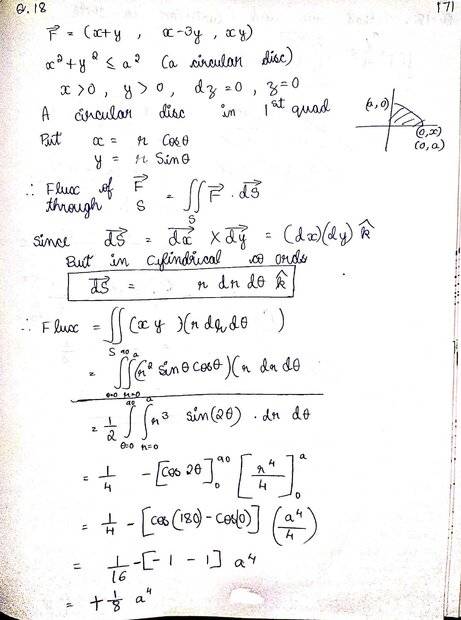 Q.18
171
F⃗ = (x+y , x-3y , xy)
x² + y² ≤ a² (a circular disc)
x > 0 , y > 0 , dz = 0 , z = 0
A circular disc in 1st quad
(a, 0)
(0, x)
(0, a)
Put x = r Cosθ
y = r Sinθ
∴ Flux of F⃗ through S = ∬_S F⃗ · dS⃗
Since dS⃗ = dx⃗ × dy⃗ = (dx)(dy) k̂
But in Cylindrical co ords
dS⃗ = r dr dθ k̂
∴ Flux = ∬_S (xy)(r dr dθ )
= ∫_{θ=0}^{90} ∫_{r=0}^{a} (r² sinθ cosθ)(r dr dθ
= 1/2 ∫_{θ=0}^{90} ∫_{r=0}^{a} r³ sin(2θ) · dr dθ
= 1/4 -[Cos 2θ]_0^{90} [r⁴/4]_0^a
= 1/4 -[cos(180) - cos(0)] (a⁴/4)
= 1/16 -[-1 - 1] a⁴
= +1/8 a⁴